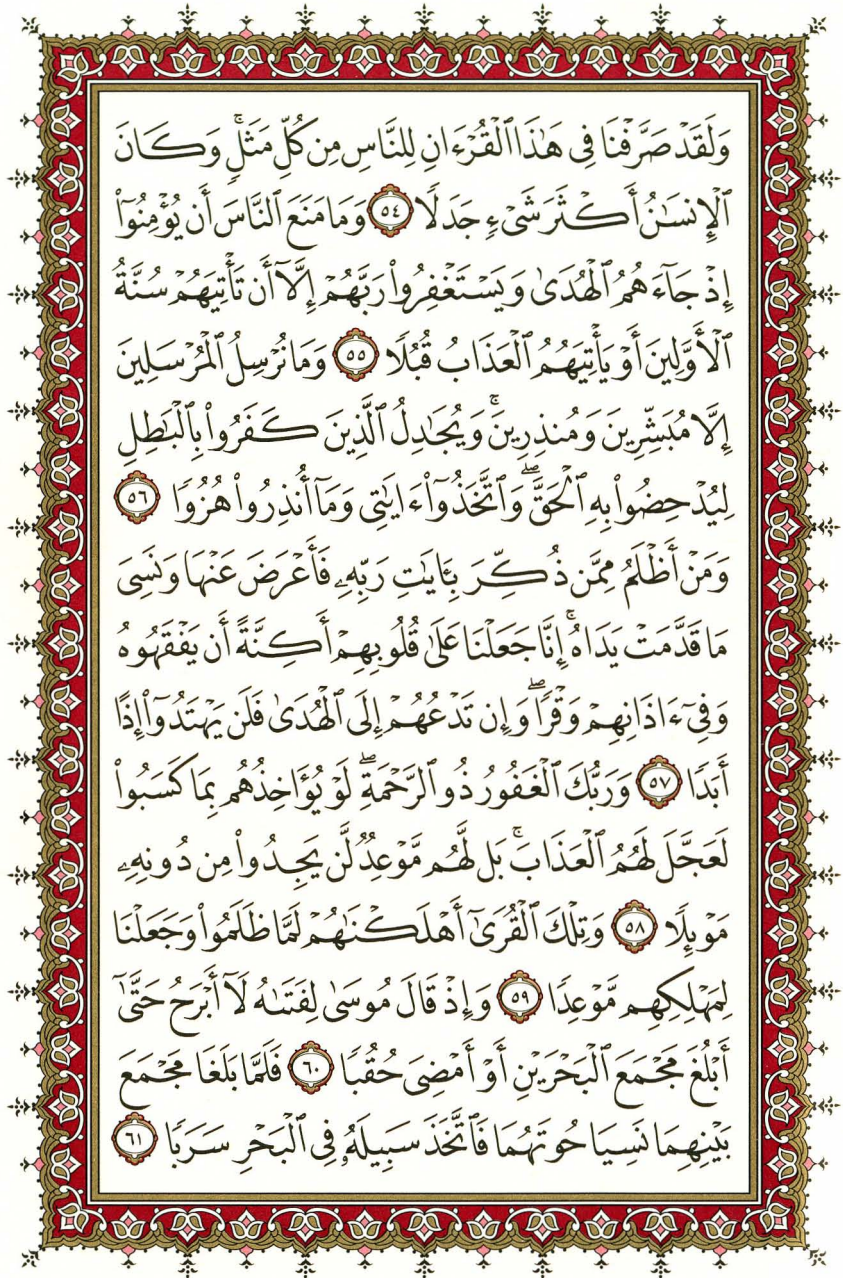 وَلَقَدْ صَرَّفْنَا فِى هَٰذَا ٱلْقُرْءَانِ لِلنَّاسِ مِن كُلِّ مَثَلٍۚ وَكَانَ
ٱلْإِنسَٰنُ أَكْثَرَ شَىْءٍ جَدَلًا ٥٤ وَمَا مَنَعَ ٱلنَّاسَ أَن يُؤْمِنُوٓا۟
إِذْ جَآءَهُمُ ٱلْهُدَىٰ وَيَسْتَغْفِرُوا۟ رَبَّهُمْ إِلَّآ أَن تَأْتِيَهُمْ سُنَّةُ
ٱلْأَوَّلِينَ أَوْ يَأْتِيَهُمُ ٱلْعَذَابُ قُبُلًا ٥٥ وَمَا نُرْسِلُ ٱلْمُرْسَلِينَ
إِلَّا مُبَشِّرِينَ وَمُنذِرِينَۚ وَيُجَٰدِلُ ٱلَّذِينَ كَفَرُوا۟ بِٱلْبَٰطِلِ
لِيُدْحِضُوا۟ بِهِ ٱلْحَقَّۖ وَٱتَّخَذُوٓا۟ ءَايَٰتِى وَمَآ أُنذِرُوا۟ هُزُوًا ٥٦
وَمَنْ أَظْلَمُ مِمَّن ذُكِّرَ بِـَٔايَٰتِ رَبِّهِۦ فَأَعْرَضَ عَنْهَا وَنَسِىَ
مَا قَدَّمَتْ يَدَاهُۚ إِنَّا جَعَلْنَا عَلَىٰ قُلُوبِهِمْ أَكِنَّةً أَن يَفْقَهُوهُ
وَفِىٓ ءَاذَانِهِمْ وَقْرًاۖ وَإِن تَدْعُهُمْ إِلَى ٱلْهُدَىٰ فَلَن يَهْتَدُوٓا۟ إِذًا
أَبَدًا ٥٧ وَرَبُّكَ ٱلْغَفُورُ ذُو ٱلرَّحْمَةِۖ لَوْ يُؤَاخِذُهُم بِمَا كَسَبُوا۟
لَعَجَّلَ لَهُمُ ٱلْعَذَابَۚ بَل لَّهُم مَّوْعِدٌ لَّن يَجِدُوا۟ مِن دُونِهِۦ
مَوْئِلًا ٥٨ وَتِلْكَ ٱلْقُرَىٰٓ أَهْلَكْنَٰهُمْ لَمَّا ظَلَمُوا۟ وَجَعَلْنَا
لِمَهْلِكِهِم مَّوْعِدًا ٥٩ وَإِذْ قَالَ مُوسَىٰ لِفَتَىٰهُ لَآ أَبْرَحُ حَتَّىٰٓ
أَبْلُغَ مَجْمَعَ ٱلْبَحْرَيْنِ أَوْ أَمْضِىَ حُقُبًا ٦٠ فَلَمَّا بَلَغَا مَجْمَعَ
بَيْنِهِمَا نَسِيَا حُوتَهُمَا فَٱتَّخَذَ سَبِيلَهُۥ فِى ٱلْبَحْرِ سَرَبًا ٦١